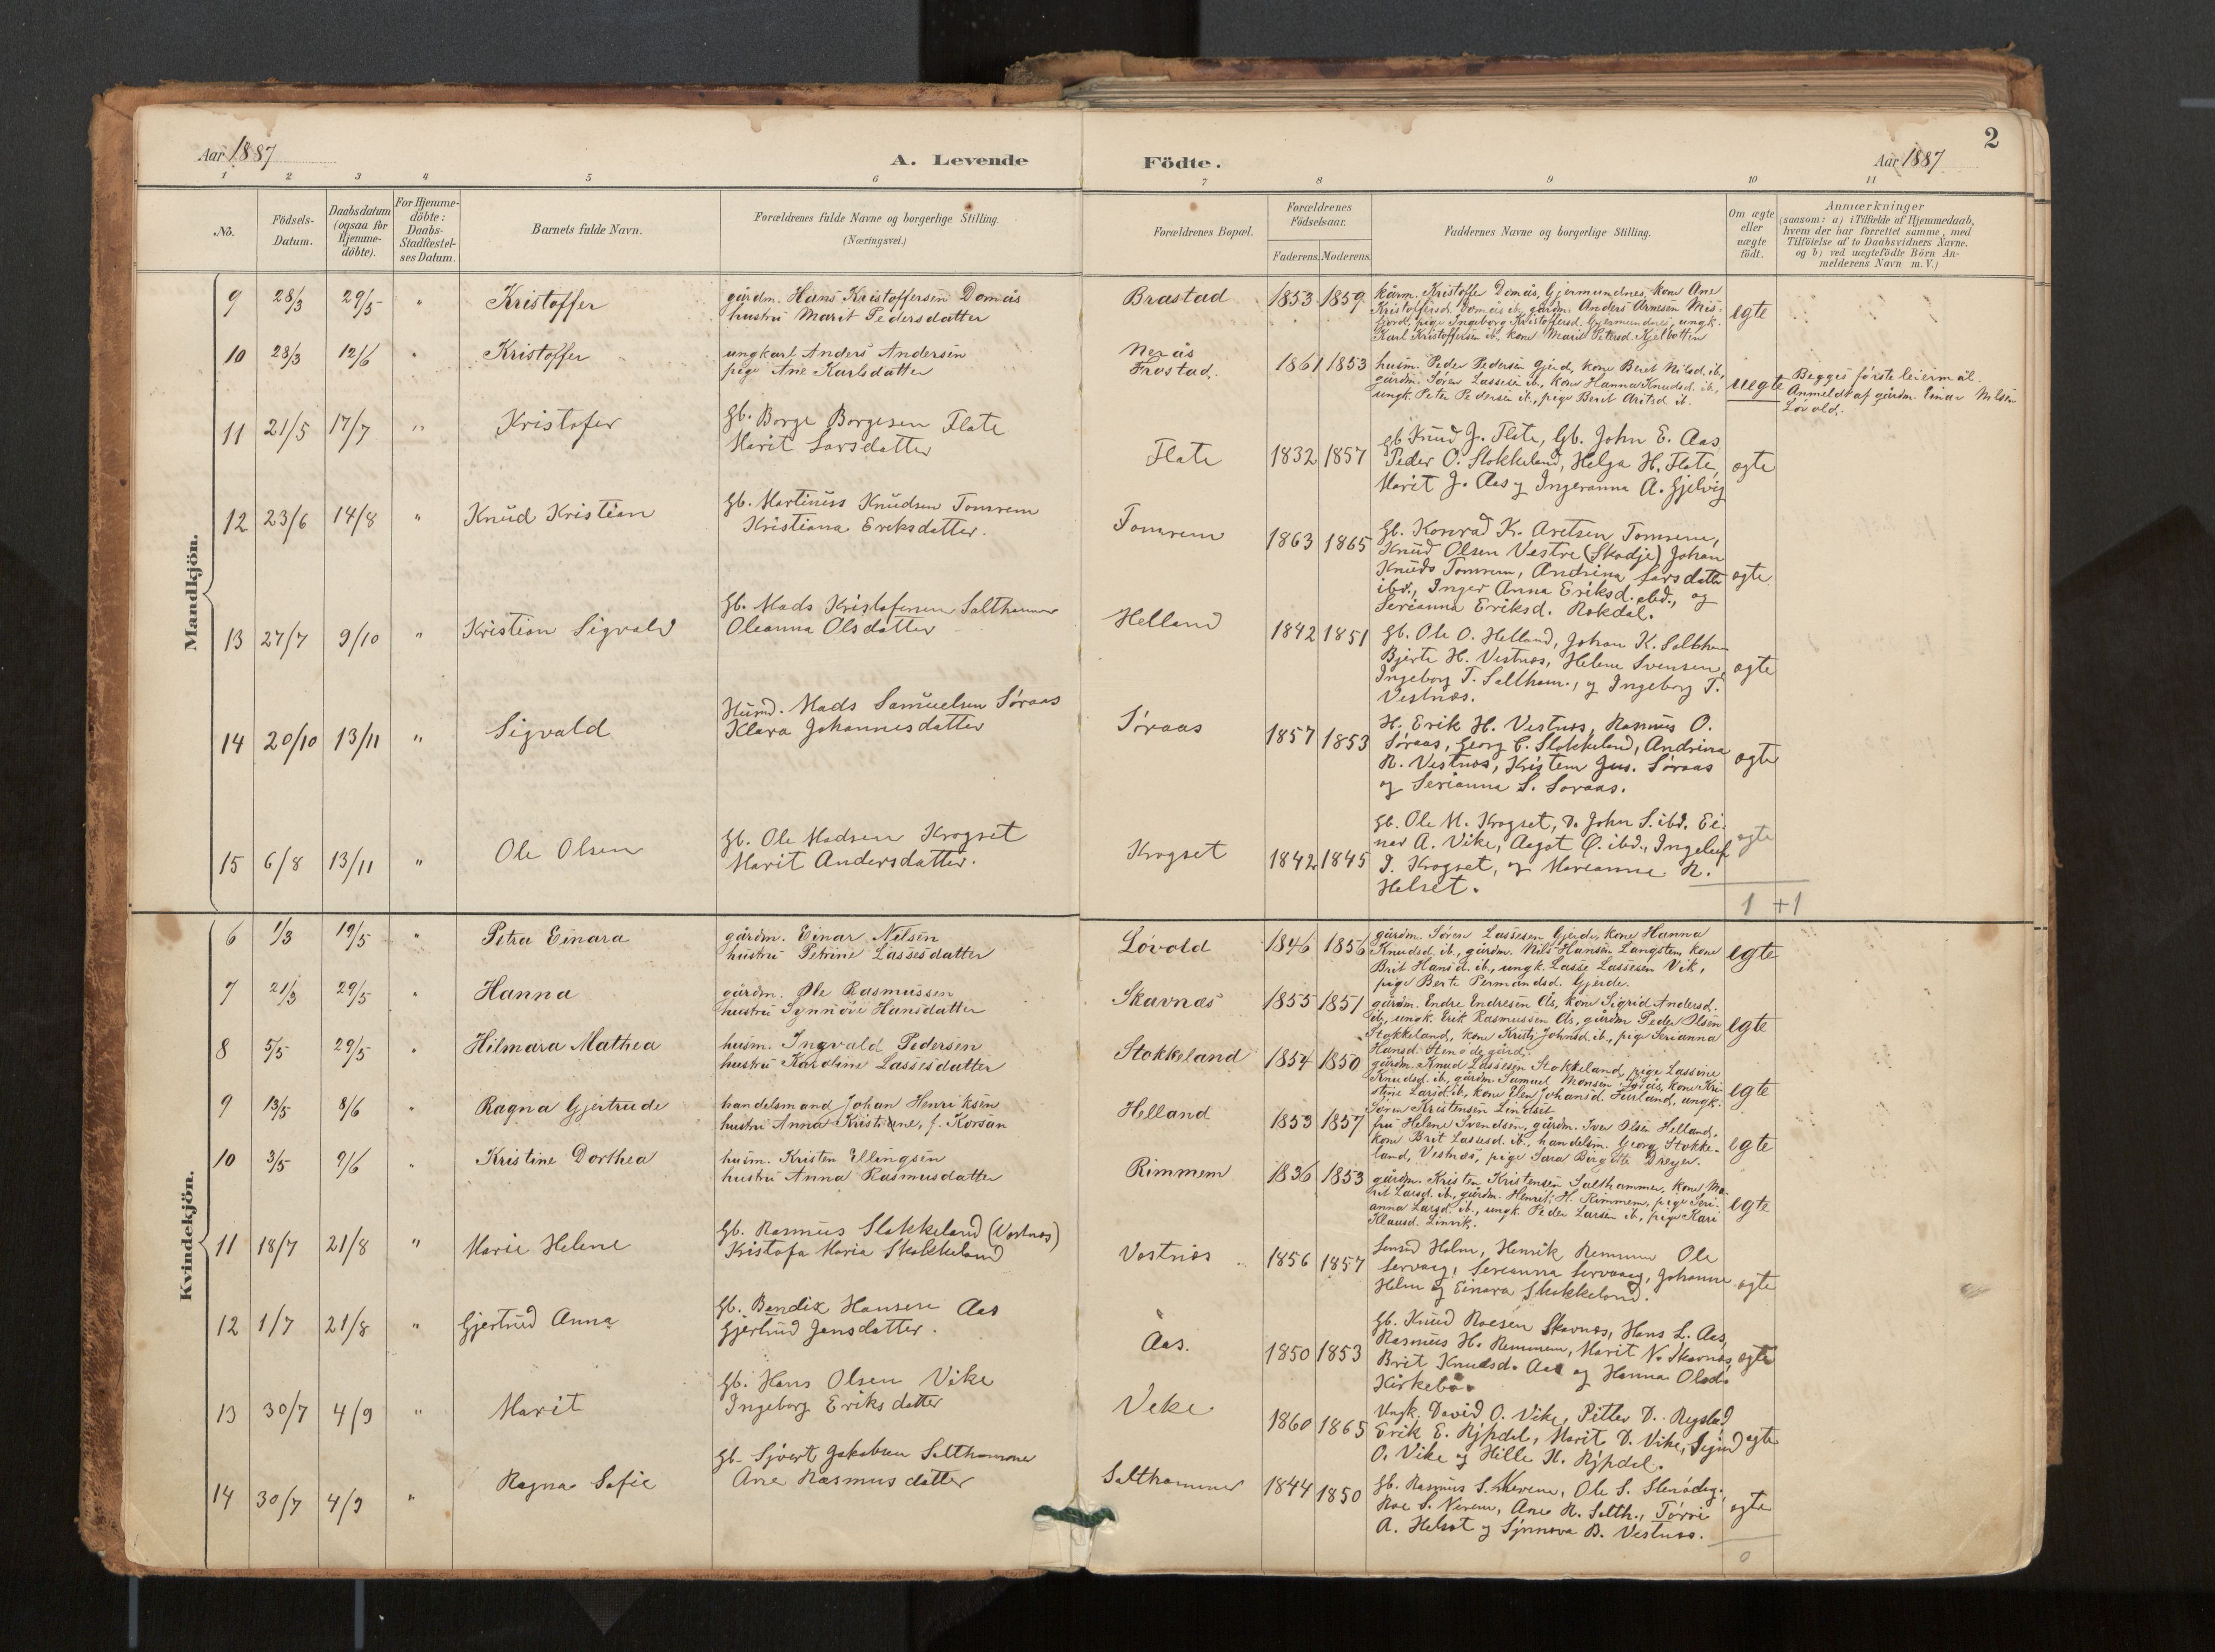 Aar 1887
A. Levende
Födte.
Aar 1887
2
1 2 3 4 5 6 7 8 9 10 11
No.
Födsels-
Datum.
Daabsdatum
(ogsaa for
Hjemme-
döbte).
For Hjemme-
döbte:
Daabs-
Stadfestel-
ses Datum.
Barnets fulde Navn.
Forældrenes fulde Navne og borgerlige Stilling.
(Næringsvei.)
Forældrenes Bopæl.
Forældrenes
Födselsaar.
Faderens. Moderens.
Faddernes Navne og borgerlige Stilling.
Om ægte
eller
uægte
födt.
Anmærkninger
(saasom: a) i Tilfælde af Hjemmedaab,
hvem der har forrettet samme, med
Tilföielse af to Daabsvidners Navne.
og b) ved uegtefödte Börn An-
melderens Navn m. V.)
Mandkjön.
9 28/3 29/5 " Kristoffer
gårdm. Hans Kristoffersen Domås
hustru Marit Pedersdatter
Brastad 1853 1859
kårm. Kristoffer Domås, Gjermundnes, kone Ane
Kristoffersd. Domås ib., gårdm. Anders Arnesen Mis-
fjord, pige Ingeborg Kristoffersd. Gjermundnes, ungk.
Karl Kristoffersen ib., kone Marit Petersd. Kjelbotten
egte
10 28/3 12/6 " Kristoffer
ungkarl Anders Andersen
pige Ane Karlsdatter
Nerås
Frostad. 1861 1853
husm. Peder Pedersen Gjerd, kone Beret Nilsd. ib.,
gårdm. Søren Lassesen ib., kone Hanna Knudsd. ib.,
ungk. Peter Pedersen ib., pige Beret Aritsd ib.
uegte
Begges første leiermål.
Anmeldt af gårdm. Einar Nilsen
Løvold.
11 21/5 17/7 " Kristofer
Gb. Borge Borgesen Flate
Marit Larsdatter
Flate 1832 1857
Gb Knud J. Flate, Gb. John E. Aas
Peder O. Stokkeland, Helga H. Flate,
Marit J. Aas og Ingeranna A. Gjelvig
ægte
12 23/6 14/8 " Knud Kristian
Gb. Martinus Knudsen Tomrem
Kristiana Ereksdatter.
Tomrem 1863 1865
Gb. Konrad K. Aretsen Tomrem,
Knud Olsen Vestre (Skodje) Johan
Knuds Tomrem, Andrina Larsdatter
ibd., Inger Anna Eriksd. ibd., og
Serianna Eriksd. Rokdal.
ægte
13 27/7 9/10 " Kristian Sigvald
Gb. Mads Kristofersen Salthammer
Oleanna Olsdatter
Helland 1842 1851
Gb. Ole O. Helland, Johan K. Salthm
Bjerte H. Vestnæs, Helene Svensen,
Ingeborg T. Saltham., og Ingeborg T.
Vestnæs.
ægte
14 20/10 13/11 " Sigvald
Husmd. Mads Samuelsen Søraas
Klara Johannesdatter
Søraas 1857 1853
H. Erik H. Vestnæs, Rasmus O.
Søraas, Georg C. Stokkeland, Andrina
R. Vestnæs, Kristen Jns. Søraas
og Serianna S. Soraas.
ægte
15 6/8 13/11 " Ole Olsen
Gb. Ole Madsen Krogset
Marit Andersdatter.
Krogset 1842 1845
Gb. Ole M. Krogset, D. John S. ibd. Ei-
nar A. Vike, Aagot Ø. ibd., Ingeleif
J. Krogset, og Marianne R.
Helset.
ægte
1 +1
Kvindekjön.
6 1/3 19/5 " Petra Einara
gårdm. Einar Nilsen
hustru Petrine Lassesdatter
Løvold 1846 1856
gårdm. Søren Lassesen Gjerde, kone Hanna
Knudsd. ib., gårdm. Nils Hansen Langsten, kone
Brit Hansd. ib., ungk. Lasse Lassesen Vik,
pige Berte Permandsd. Gjerde.
egte
7 21/3 29/5 " Hanna
gårdm. Ole Rasmussen
hustru Synnöve Hansdatter
Skavnæs 1855 1851
gårdm. Endre Endresen Ås, kone Sigrid Andersd.
ib., ungk. Erik Rasmussen Ås, gårdm Peder Olsen
Stokkeland, kone Kristi Johnsd. ib., pige Serianna
Hansd. Stenødegård.
egte
8 5/5 29/5 " Hilmara Mathea
husm. Ingvald Pedersen
hustru Karoline Lassesdatter
Stokkeland 1854 1850
gårdm. Knud Lassesen Stokkeland, pige Lassine
Knudsd. ib., gårdm. Samuel Monsen Sørås, kone Kri-
stine Larsd. ib., kone Elen Johansd. Furland, ungk.
Søren Kristensen Lindset
egte
9 13/5 8/6 " Ragna Gjertrude
handelsmand Johan Henriksen
hustru Anna Kristiane, f. Korsan
Helland 1853 1857
fru Helene Svendsen, gårdm. Iver Olsen Helland,
kone Brit Lassesd. ib., handelsm. Georg Stokke-
land, Vestnæs, pige Sara Birgitte Dreyer.
egte
10 3/5 9/6 " Kristine Dorthea
husm. Kristen Ellingsen
hustru Anna Rasmusdatter
Rimmem 1836 1853
gårdm. Kristen Kristensen Salthammer, kone Ma-
rit Larsd. ib., gårdm. Henrik H. Rimmem, pige Seri-
anna Larsd. ib., ungk. Peder Larsen ib., pige Kari
Klausd. Linvik.
egte
11 18/7 21/8 " Marie Helene
Gb. Rasmus Stokkeland (Vestnæs)
Kristofa Maria Skokkeland
Vestnæs 1856 1857
Holm, Henrik Remmem Ole
Servaag, Serianna Servaag, Johanne
Helm og Einara Skokkeland.
ægte
12 1/7 21/8 " Gjertrud Anna
Gb. Bendix Hansen Aas
Gjertrud Jensdatter.
Aas. 1850 1853
Gb. Knud Roesen Skavnæs, Hans L. Aas,
Rasmus H. Remmem, Marit N. Skavnæs,
Brit Knudsd. Aas og Hanna Olsd.
Kirkebö.
ægte
13 30/7 4/9 " Marit
Gb. Hans Olsen Vike
Ingeborg Eriksdatter
Veke 1860 1865
Ungk. David O. Vike, Petter D. Rypdal
Erik E. Rypdal, Marit D. Vike, Sigrid
O. Vike og Hille H. Rypdal.
ægte
14 30/7 4/9 " Ragna Sofie
Gb. Sjvert Jakobsen Salthammer
Ane Rasmusdatter
Salthammer 1844 1850
Gb. Rasmus S. Nerem, Ole S. Stenödeg.
Roe S. Nerem, Ane R. Salth., Torri
A. Helset og Synnova B. Vestnæs.
ægte
0